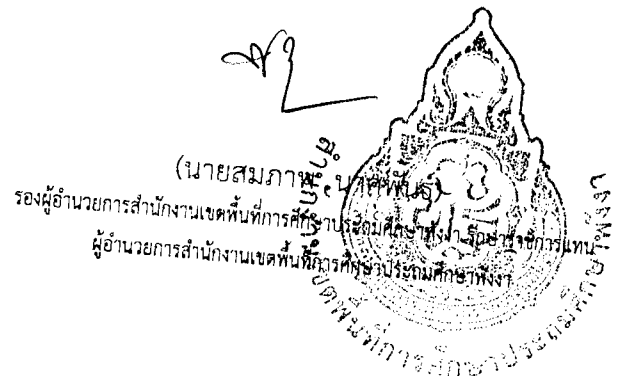 (นายสมภาพ
รองผู้อำนวยการสำนักงานเขตพื้นที่การศึกษาประถมศึกษาพังงา รักษาราชการแทน
ผู้อำนวยการสำนักงานเขตพื้นที่การศึกษาประถมศึกษาพังงา
เขตพื้นที่การศึกษาประถมศึกษา